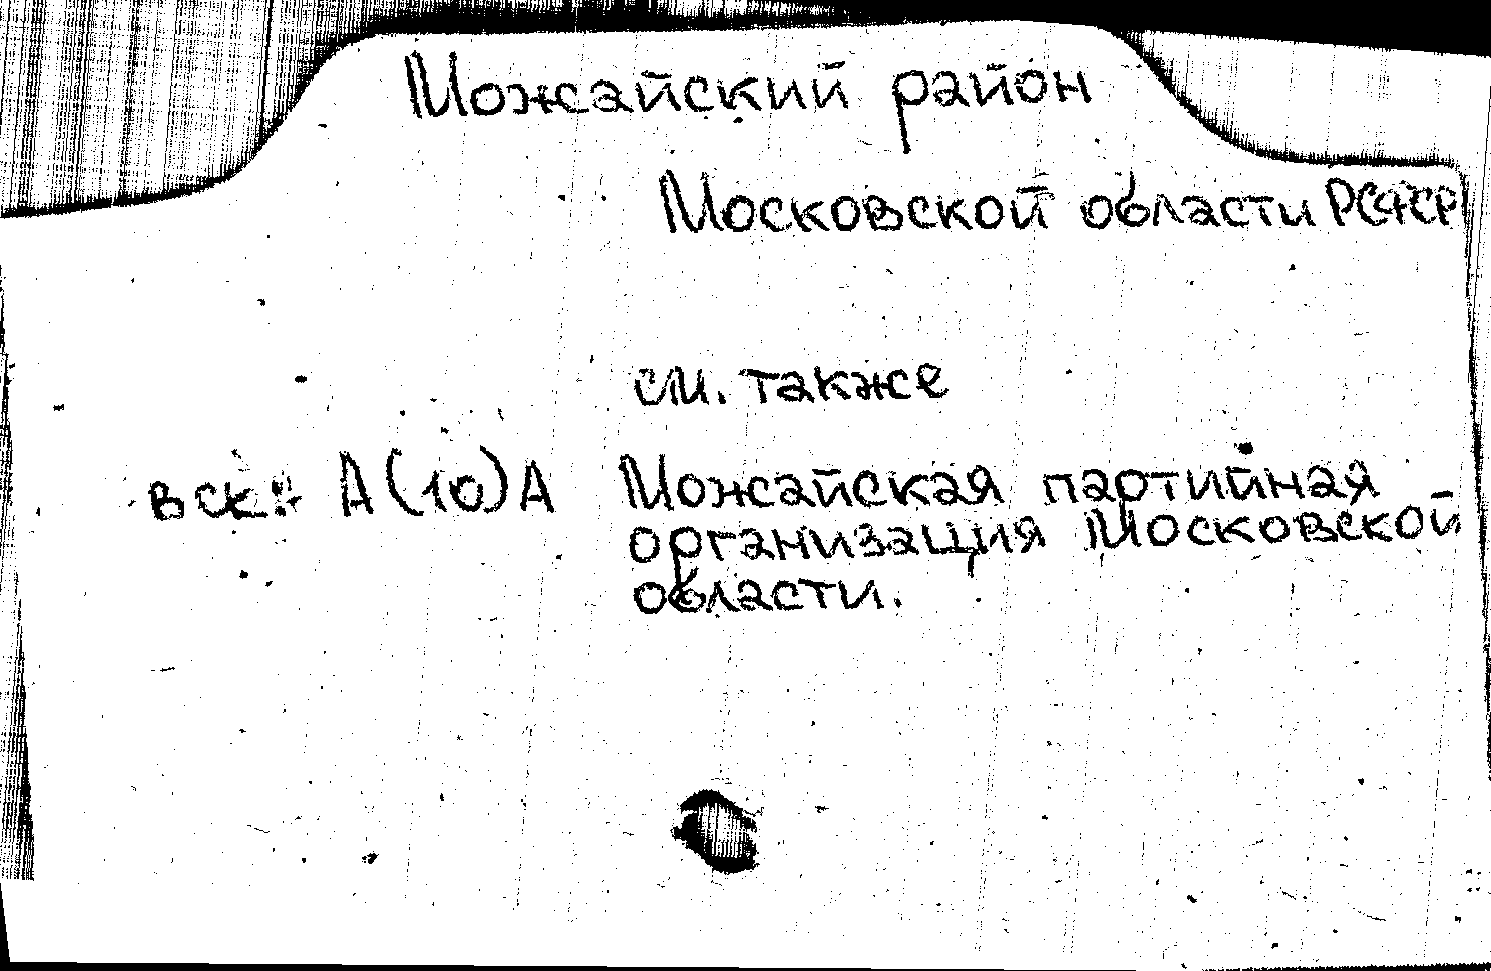 Можайский район
Московской области РСФСР
см. также
в ск.: А(10)А Можайская партийная
организация Московской
области.